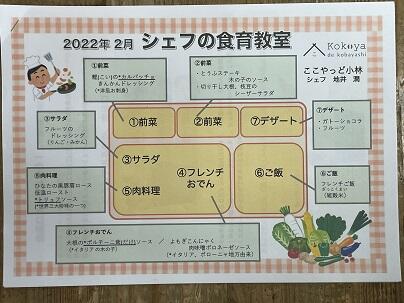 2022年2月 シェフの食育教室
Kokoya
de kobayashi
ここやっど小林
シェフ 地井 潤
①前菜
鯉(こい)の*カルパッチョ
きんかんドレッシング
(*洋風お刺身)
②前菜
・とうふステーキ
木の子のソース
・切り干し大根、枝豆の
シーザーサラダ
⑦デザート
・ガトーショコラ
・フルーツ
③サラダ
フルーツの
ドレッシング
(りんご・みかん)
①前菜
②前菜
⑦デザート
③サラダ
④フレンチ
おでん
⑤肉料理
⑥ご飯
⑤肉料理
ひなたの黒豚肩ロース
低温ロースト
*トリュフソース
(*世界三大珍味の一つ)
⑥ご飯
フレンチご飯
(雑穀米)
④フレンチおでん
大根の*ポルチーニ茸(だけ)ソース / よもぎこんにゃく
(*イタリアの木の子)
肉味噌ボロネーゼソース
(*イタリア、ボローニャ地方由来)